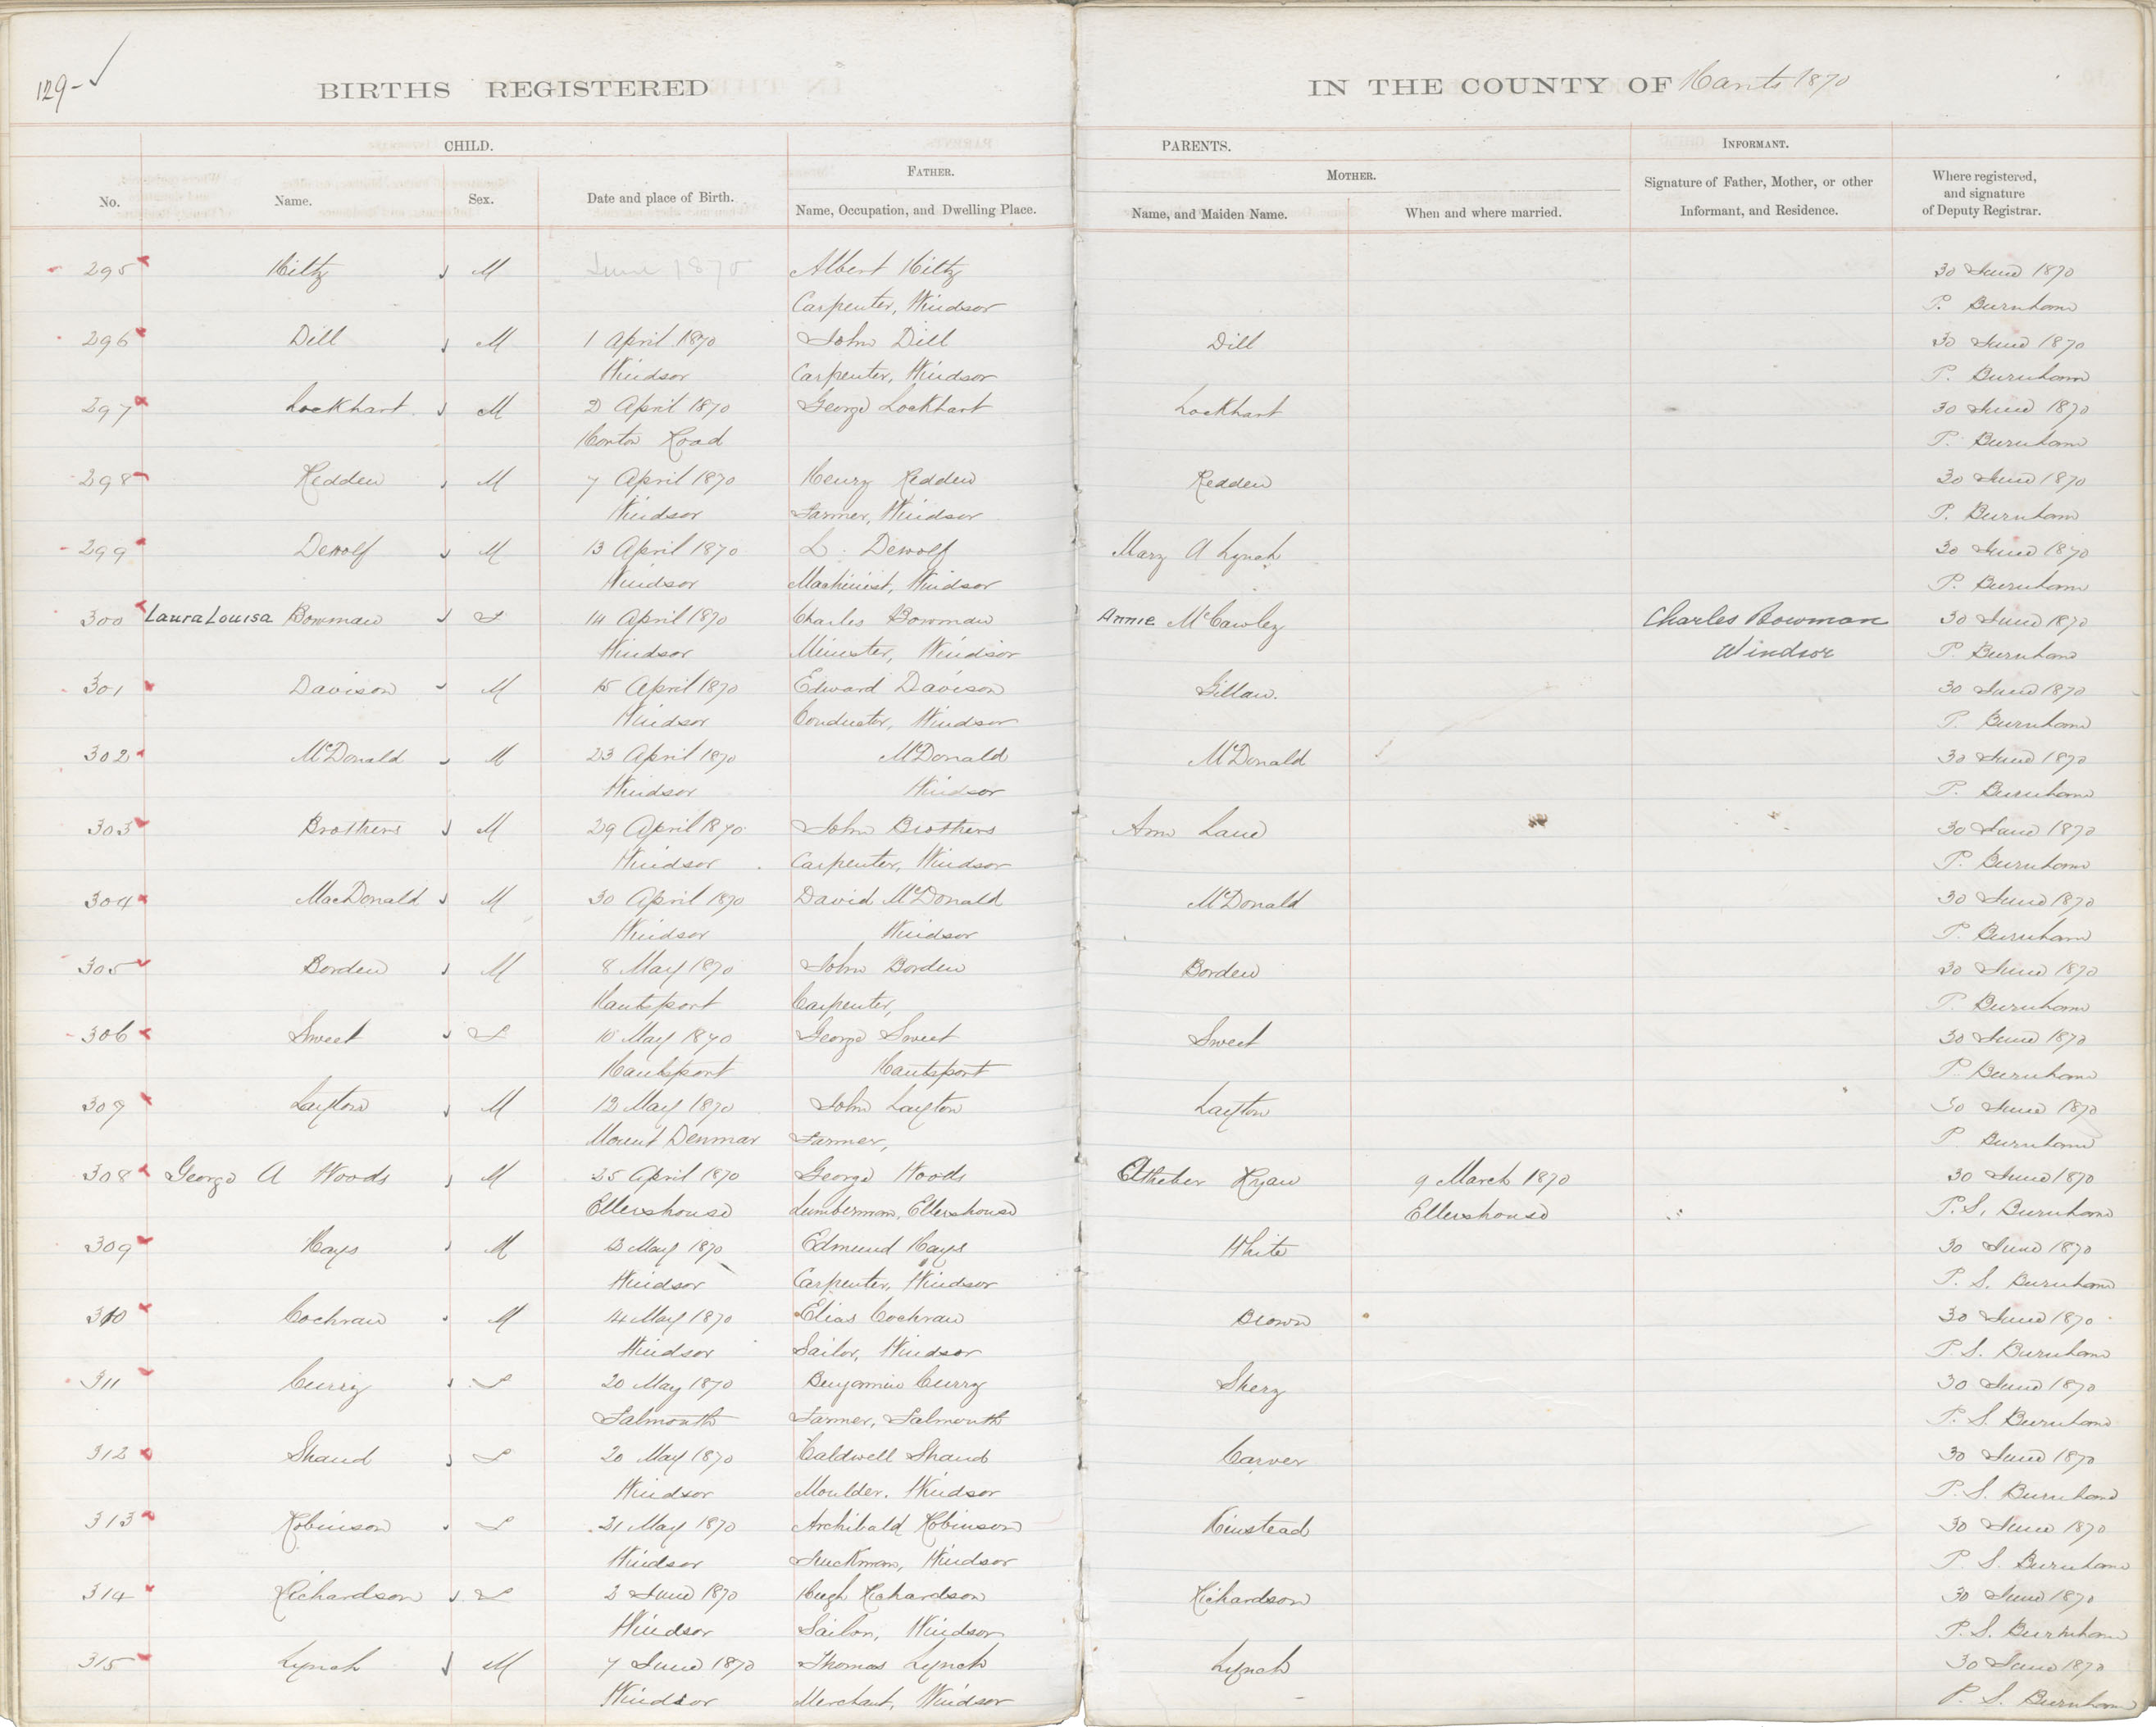 129-
BIRTHS REGISTERED IN THE COUNTY OF Hants 1870
CHILD. PARENTS. INFORMANT.
FATHER. MOTHER.
No. Name. Sex. Date and place of Birth. Name, Occupation, and Dwelling Place. Name, and Maiden Name. When and where married. Signature of Father, Mother, or other Informant, and Residence. Where registered, and signature of Deputy Registrar.
295 Hiltz M June 1870 Albert Hiltz 30 June 1870
Carpenter, Windsor P. Burnham
296 Dill M 1 April 1870 John Dill Dill 30 June 1870
Windsor Carpenter, Windsor P. Burnham
297 Lockhart M 2 April 1870 George Lockhart Lockhart 30 June 1870
Road P. Burnham
298 Redden M 7 April 1870 Henry Redden Redden 30 June 1870
Windsor Farmer, Windsor P. Burnham
299 Dewolf M 13 April 1870 L. Dewolf Mary A Lynch 30 June 1870
Windsor Machinist, Windsor P. Burnham
300 Laura Louisa Bowman F 14 April 1870 Charles Bowman Annie McCawley Charles Bowman 30 June 1870
Windsor Minister, Windsor Windsor P. Burnham
301 Davison M 15 April 1870 Edward Davison 30 June 1870
Windsor Conductor, Windsor P. Burnham
302 McDonald M 23 April 1870 McDonald McDonald 30 June 1870
Windsor Windsor P. Burnham
303 Brothers M 29 April 1870 John Brothers Ann Lane 30 June 1870
Windsor Carpenter, Windsor P. Burnham
304 MacDonald M 30 April 1870 David McDonald McDonald 30 June 1870
Windsor Windsor P. Burnham
305 Borden M 8 May 1870 John Borden Borden 30 June 1870
Hantsport Carpenter, P. Burnham
306 Sweet F 10 May 1870 George Sweet Sweet 30 June 1870
Hantsport Hantsport P. Burnham
307 Layton M 12 May 1870 John Layton Layton 30 June 1870
Mount Denmar Farmer, P Burnham
308 George A Woods M 25 April 1870 George Woods Ryan 9 March 1870 30 June 1870
Ellershouse Lumberman, Ellershouse Ellershouse P. S. Burnham
309 Hays M 13 May 1870 Edmund Hays White 30 June 1870
Windsor Carpenter, Windsor P. S. Burnham
310 Cochran M 14 May 1870 Elias Cochran Brown 30 June 1870
Windsor Sailor, Windsor P. S. Burnham
311 Curry F 20 May 1870 Benjamin Curry 30 June 1870
Falmouth Farmer, Falmouth P. S. Burnham
312 Shand F 20 May 1870 Caldwell Shand Carver 30 June 1870
Windsor Moulder. Windsor P. S. Burnham
313 Robinson F 21 May 1870 Archibald Robinson Kinstead 30 June 1870
Windsor Truckman, Windsor P. S. Burnham
314 Richardson F 2 June 1870 Hugh Richardson Richardson 30 June 1870
Windsor Sailor, Windsor P. S. Burnham
315 Lynch M 7 June 1870 Thomas Lynch Lynch 30 June 1870
Windsor Merchant, Windsor P. S. Burnham